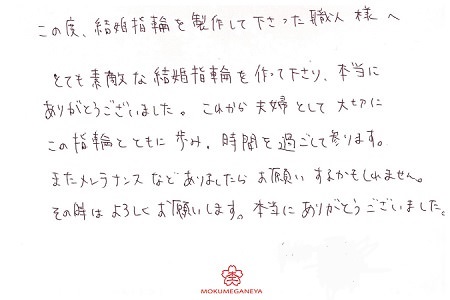 この度、結婚指輪を製作して下さった職人様へ
とても素敵な結婚指輪を作って下さり、本当に
ありがとうございました。これから夫婦として大切に
この指輪とともに歩み、時間を過ごして参ります。
またメンテナンスなどありましたらお願いするかもしれません。
その時はよろしくお願いします。本当にありがとうございました。
MOKUMEGANEYA